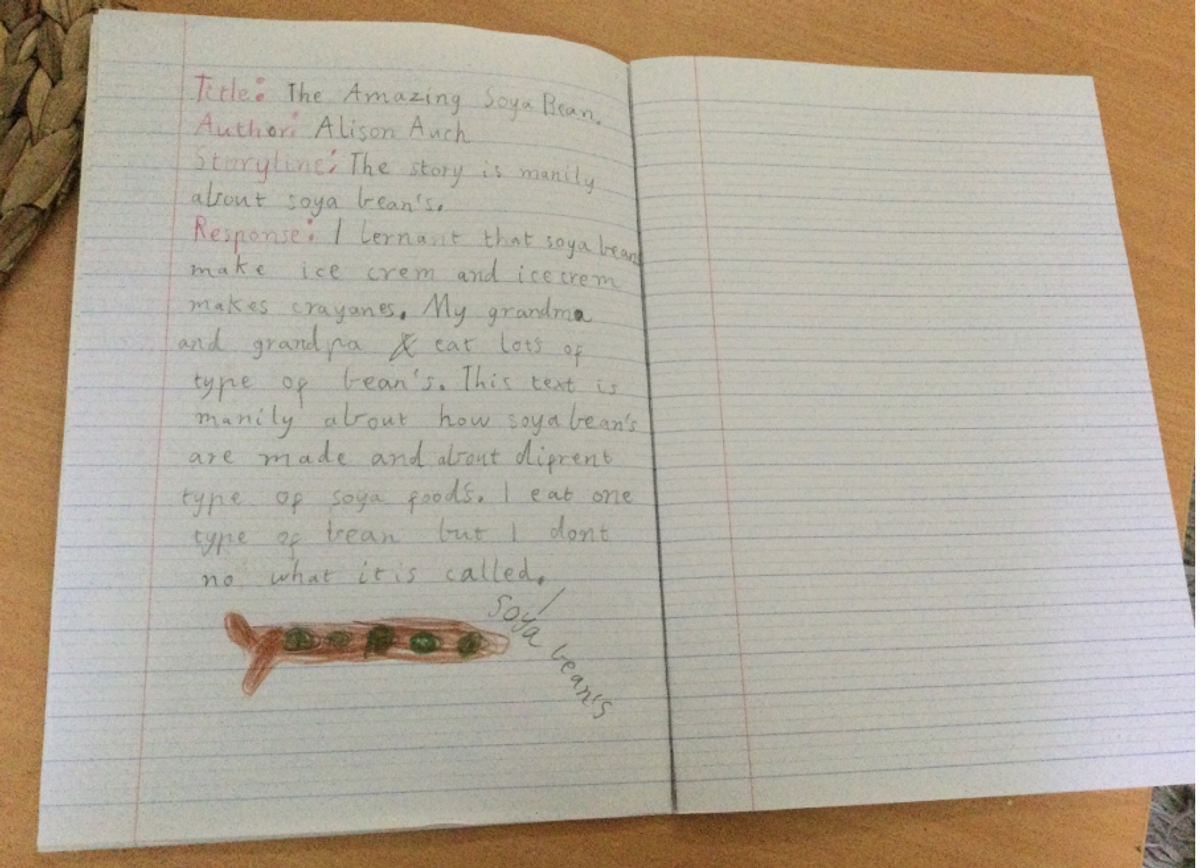 Title: The Amazing Soya Bean.
Author: Alison Auch
Storyline: The story is manily
about soya bean's.
Response: I lernant that soya bean
make ice crem and icecrem
makes crayanes. My grandma
and grandpa & eat lots of
type of bean's. This text is
manily about how soyabean's
are made and about difrent
type of soya foods. I eat one
type of bean but I dont
no what it is called.
Soya bean's